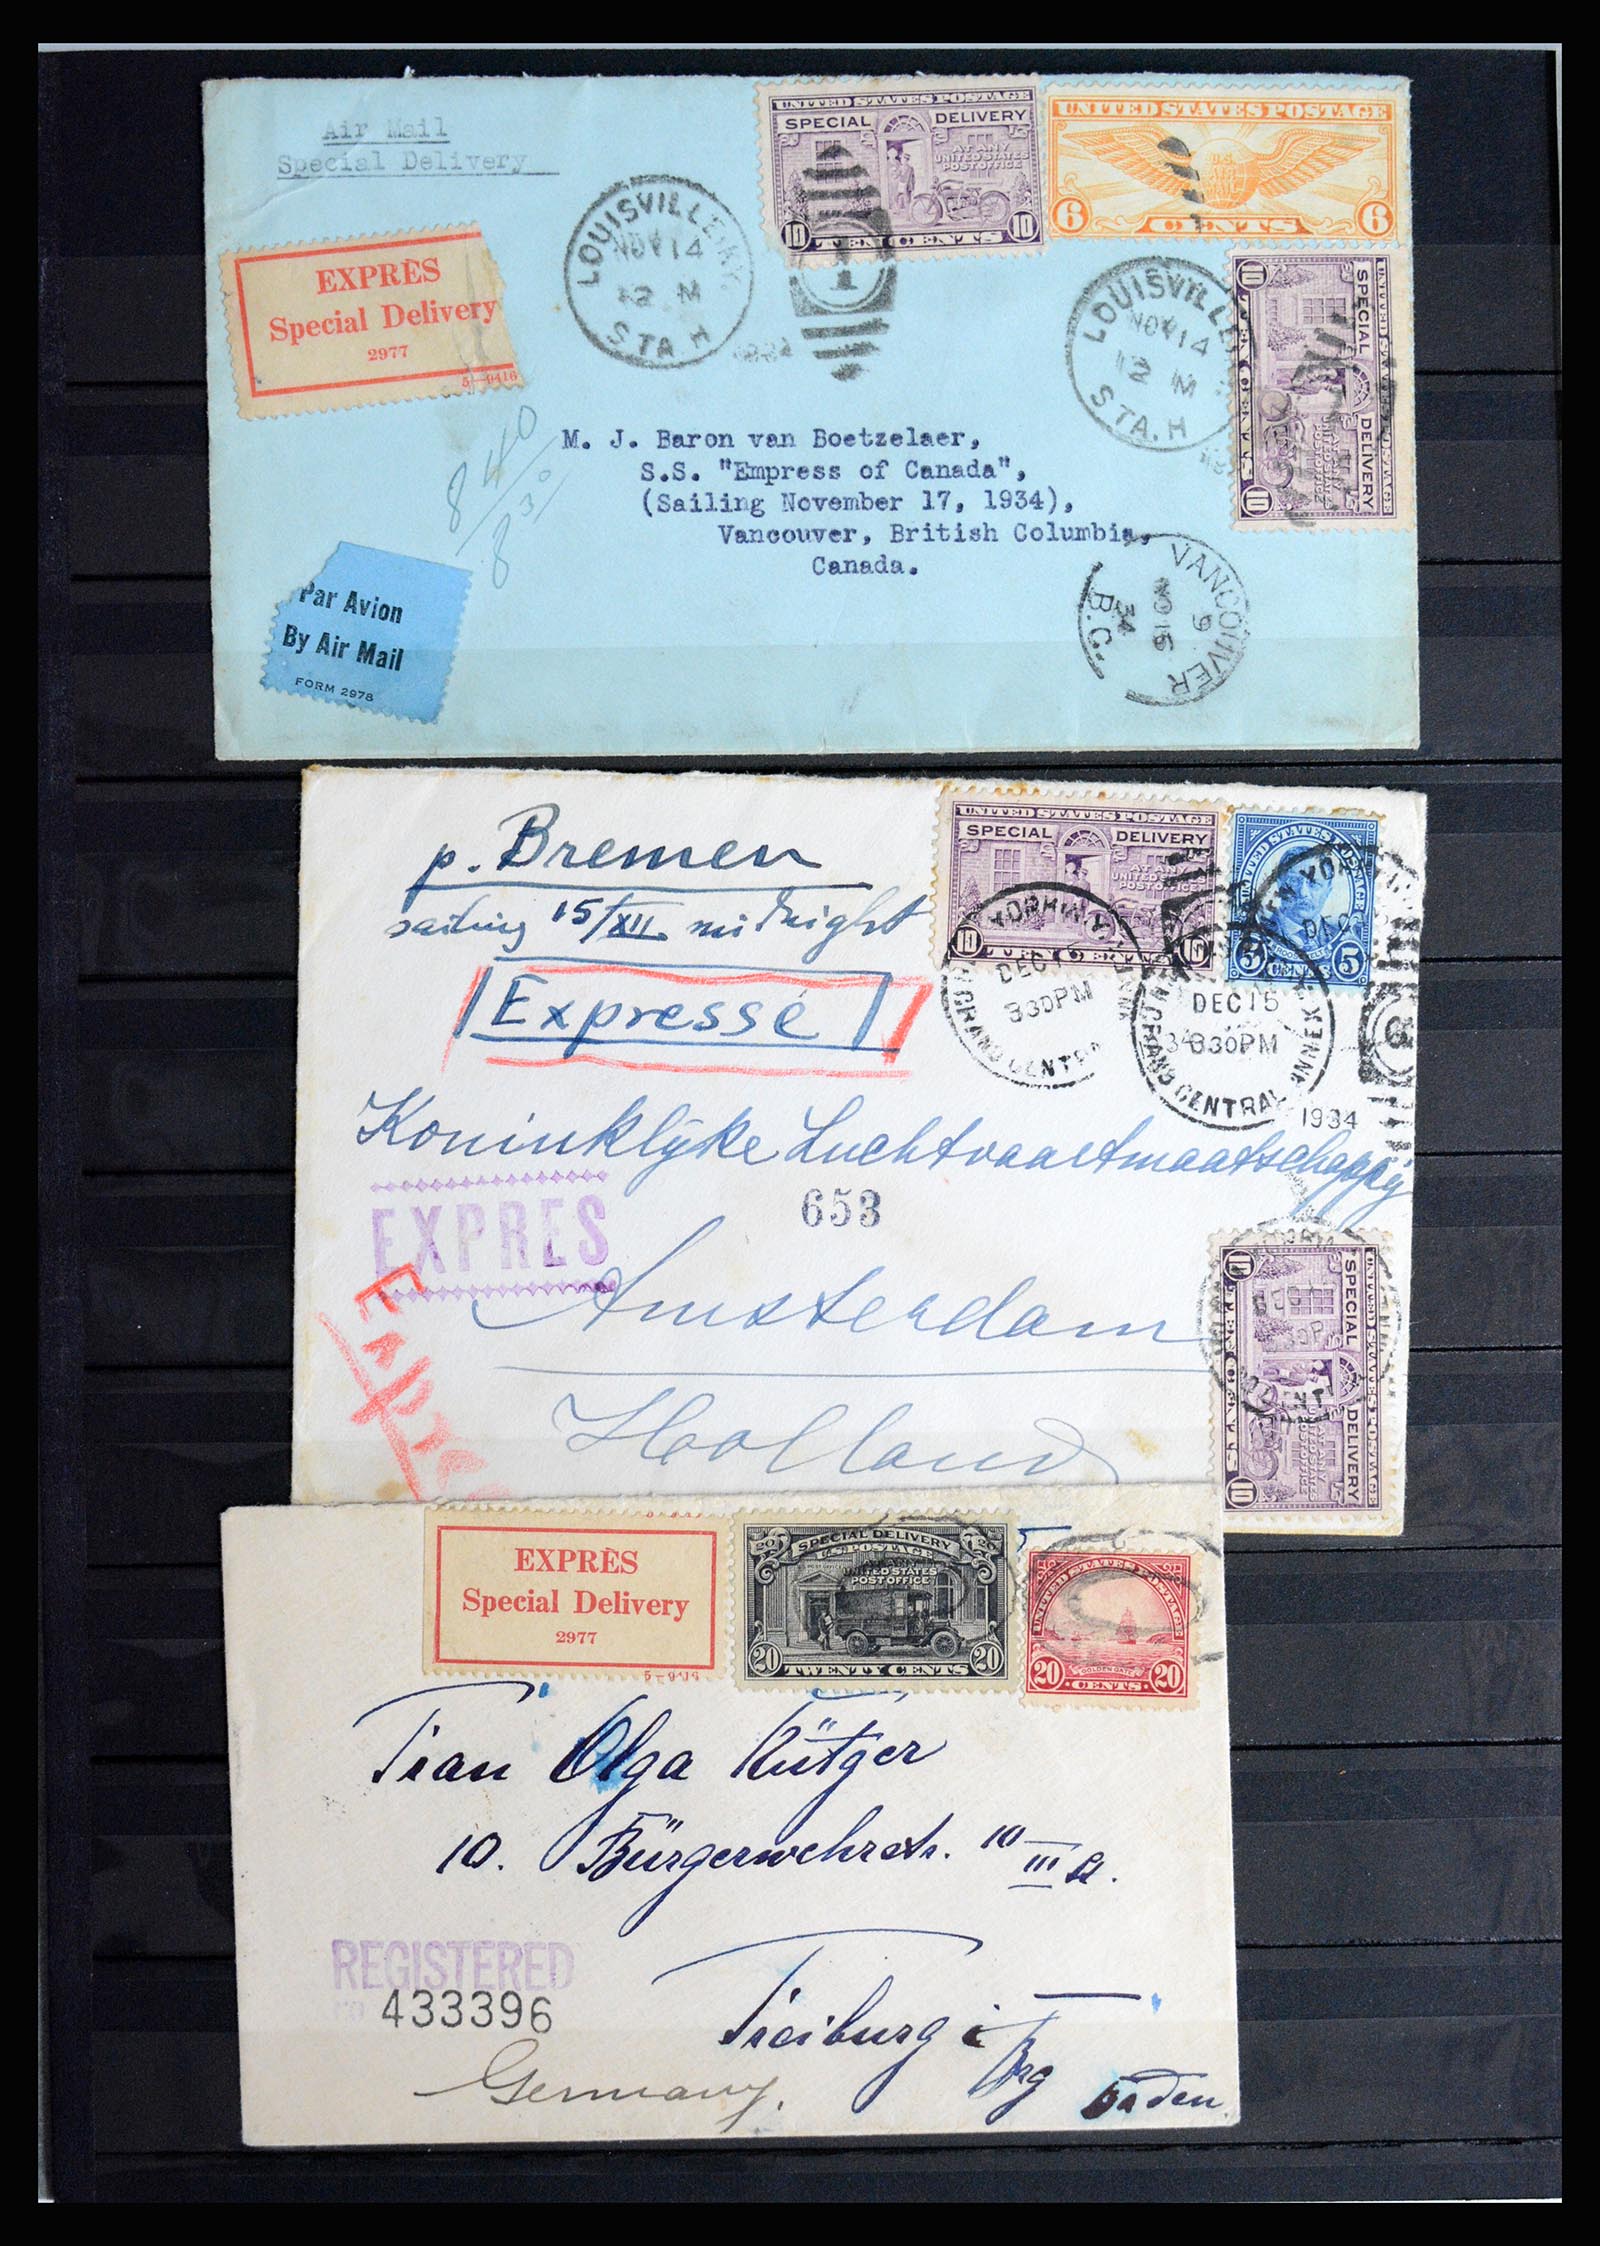 Air Mail
Special Delivery
EXPRÈS
Special Delivery
2977
5—9416
LOUISVILLE, KY.
NOV 14
12 M
STA. H
UNITED STATES POSTAGE
SPECIAL DELIVERY
AT ANY
UNITED STATES
POST OFFICE
10 TEN CENTS 10
1
UNITED STATES POSTAGE
U.S.
AIR MAIL
6 CENTS 6
LOUISVILLE
NOV 14
12 M
STA. H
UNITED STATES POSTAGE
SPECIAL DELIVERY
10 TEN CENTS 10
840
830
M. J. Baron van Boetzelaer,
S.S. "Empress of Canada",
(Sailing November 17, 1934),
Vancouver, British Columbia,
Canada.
Par Avion
By Air Mail
FORM 2978
VANCOUVER
9
NO 16
34
B.C.
p. Bremen
sailing 15/XII midnight
Expresse
UNITED STATES POSTAGE
SPECIAL DELIVERY
AT ANY
UNITED STATES
POST OFFICE
10 TEN CENTS 10
UNITED STATES POSTAGE
5 CENTS 5
DEC 15
830PM
GRAND CENTRAL
DEC 15
830PM
GRAND CENTRAL ANNEX
1934
Koninklijke Luchtvaartmaatschappij
EXPRES
653
Amsterdam
Holland
UNITED STATES POSTAGE
SPECIAL DELIVERY
10 TEN CENTS 10
EXPRÈS
Special Delivery
2977
5—9416
SPECIAL DELIVERY
U.S. POSTAGE
AT ANY
UNITED STATES
POST OFFICE
20 TWENTY CENTS 20
UNITED STATES POSTAGE
GOLDEN GATE
20 CENTS 20
Frau Olga Rütger
10. Bürgerwehrstr. 10 III a.
Freiburg i
Brg
Baden
REGISTERED
NO 433396
Germany.